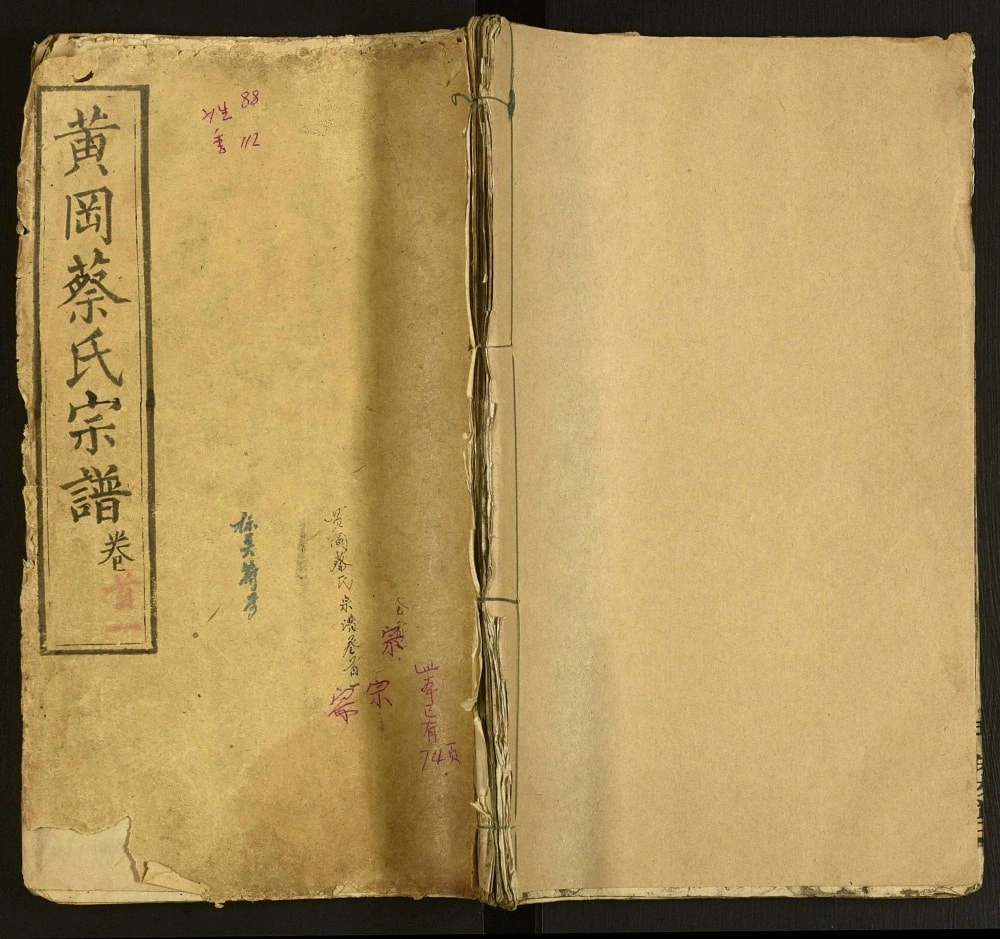 黄岡蔡氏宗譜卷首一
姓 88
季 112
黄岡蔡氏宗譜卷首一
宗
宗
此本已有
74页